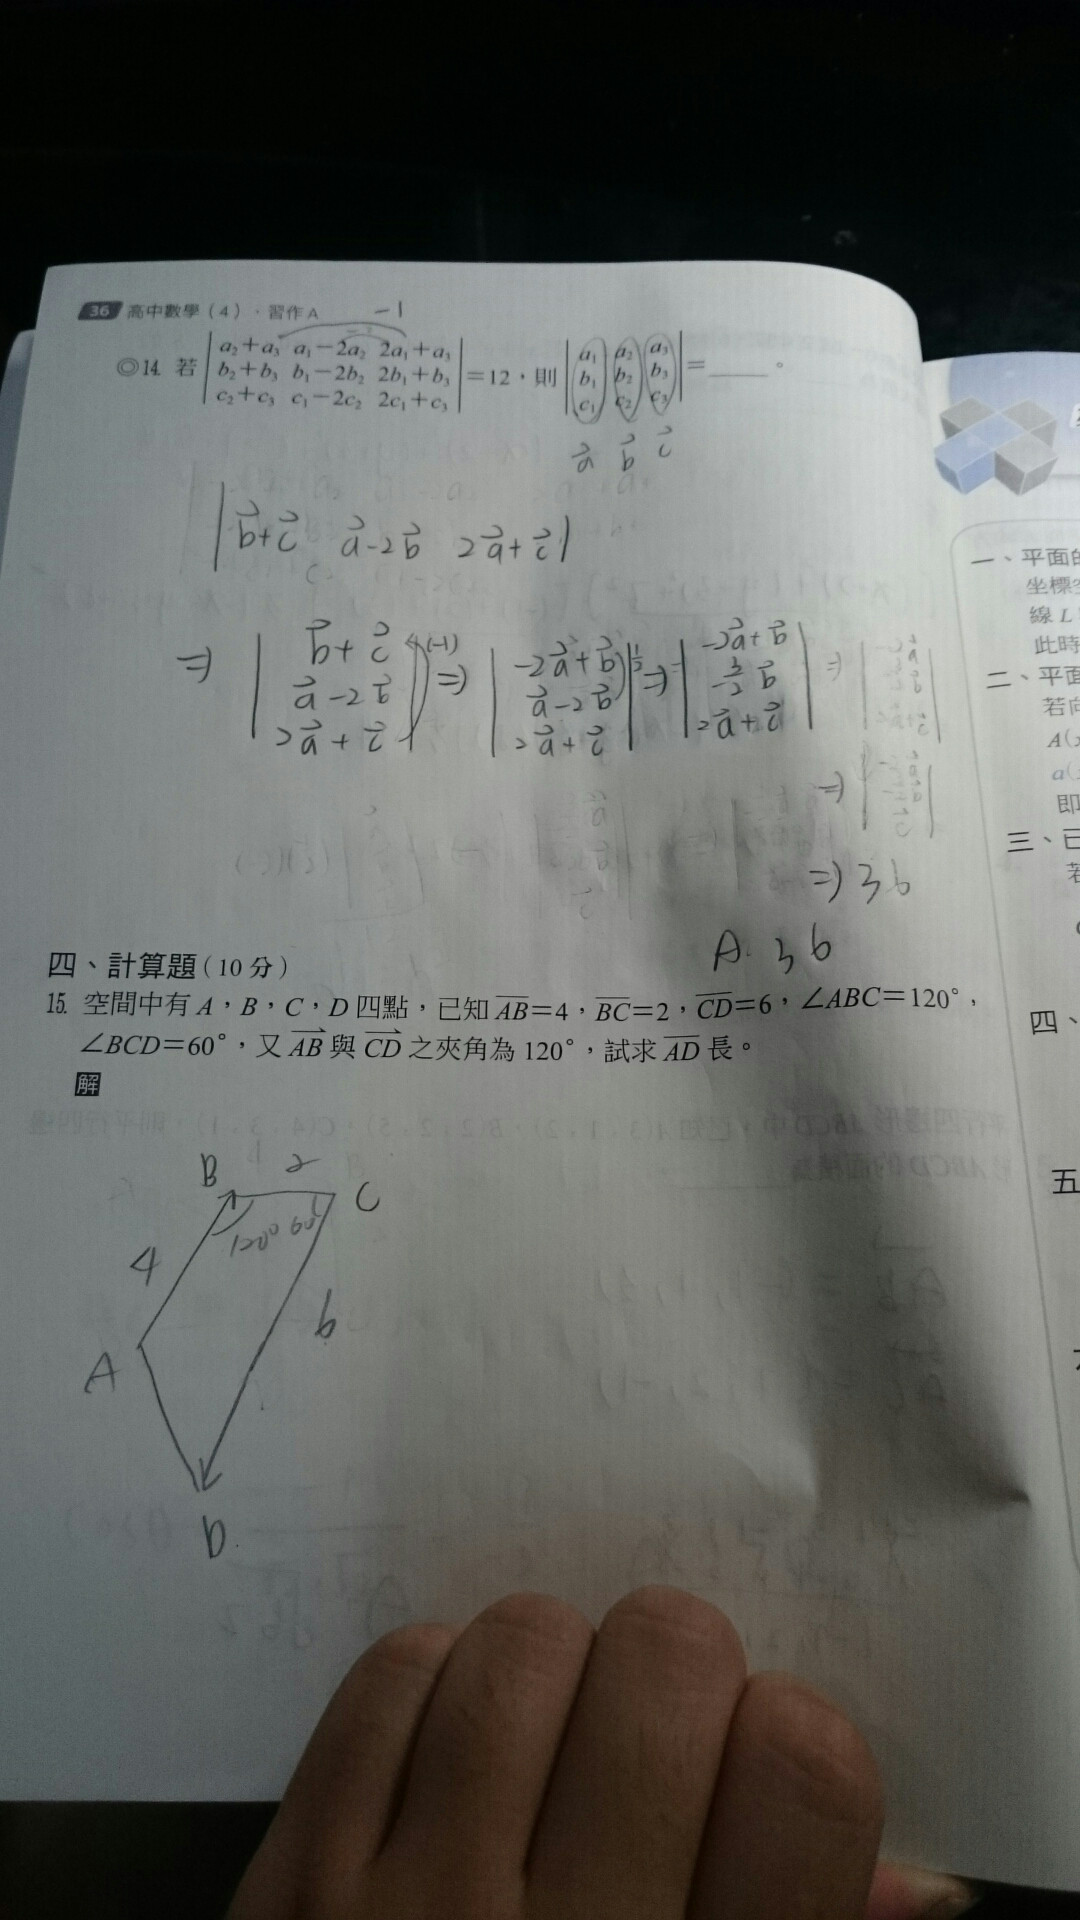 36 高中數學(4)．習作A
-1
◎14. 若 | a₂+a₃ a₁-2a₂ 2a₁+a₃ |
| b₂+b₃ b₁-2b₂ 2b₁+b₃ | =12，則 | a₁ a₂ a₃ |
| c₂+c₃ c₁-2c₂ 2c₁+c₃ | | b₁ b₂ b₃ | =______。
| c₁ c₂ c₃ |
a⃗ b⃗ c⃗
| b⃗+c⃗ a⃗-2b⃗ 2a⃗+c⃗ |
⇒ | b⃗+c⃗ | (-1) ⇒ | -2a⃗+b⃗ | ⇒ | -2a⃗+b⃗ | ⇒
| a⃗-2b⃗ | | a⃗-2b⃗ | | -3/2 b⃗ |
| 2a⃗+c⃗ | | 2a⃗+c⃗ | | 2a⃗+c⃗ |
⇒
⇒ 36
A. 36
四、計算題(10分)
15. 空間中有A，B，C，D四點，已知AB=4，BC=2，CD=6，∠ABC=120°，
∠BCD=60°，又AB與CD之夾角為120°，試求AD長。
解
B 2 C
120° 60°
4
6
A
D
一、平面
坐標
線L
此時
二、平面
若向
A(
a(
即
三、已
若
四、
五